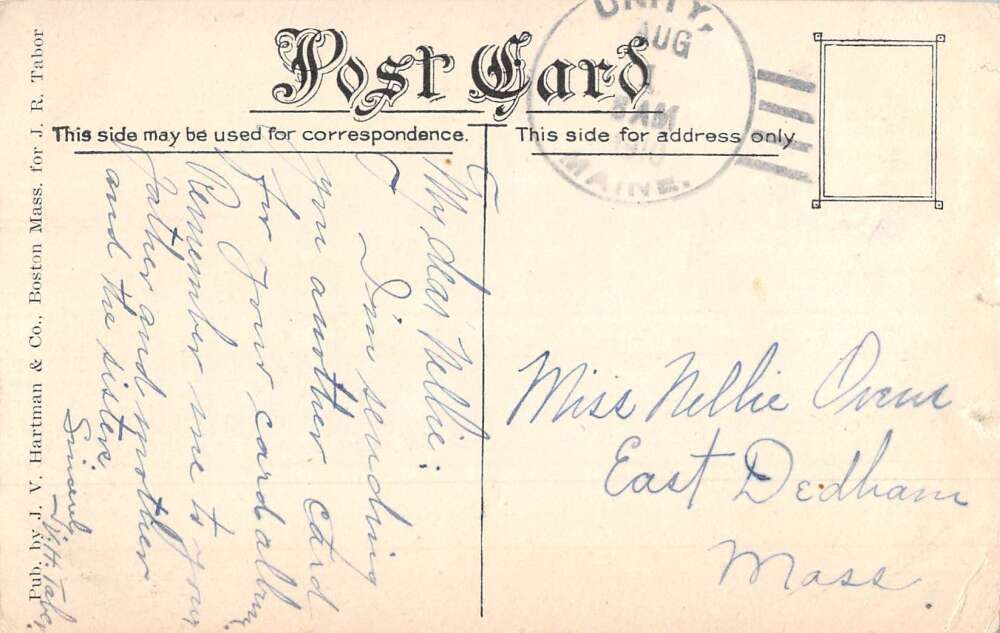 Post Card
This side may be used for correspondence.
This side for address only
Pub. by J. V. Hartman & Co., Boston Mass. for J. R. Tabor
UNITY,
AUG
1
8 AM
1910
MAINE.
My dear Nellie:
I'm sending
you another card
for your card album,
Remember me to your
father and mother
and the sister
W. H. Tabor
Miss Nellie
East Dedham
Mass.